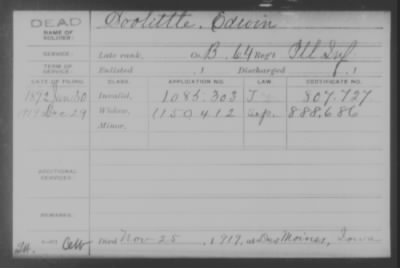 DEAD Doolittle, Edwin
NAME OF SOLDIER:
SERVICE: Late rank, Co. B, 64 Reg't Ill Inf
TERM OF SERVICE: Enlisted , 1 Discharged , 1
DATE OF FILING. CLASS. APPLICATION NO. LAW CERTIFICATE NO.
1892 Jun 30 Invalid, 1085.303 J 807.727
1919 Dec 29 Widow, 1150412 888.686
Minor,
ADDITIONAL SERVICES:
REMARKS:
Died Nov 25, 1919, at Des Moines, Iowa